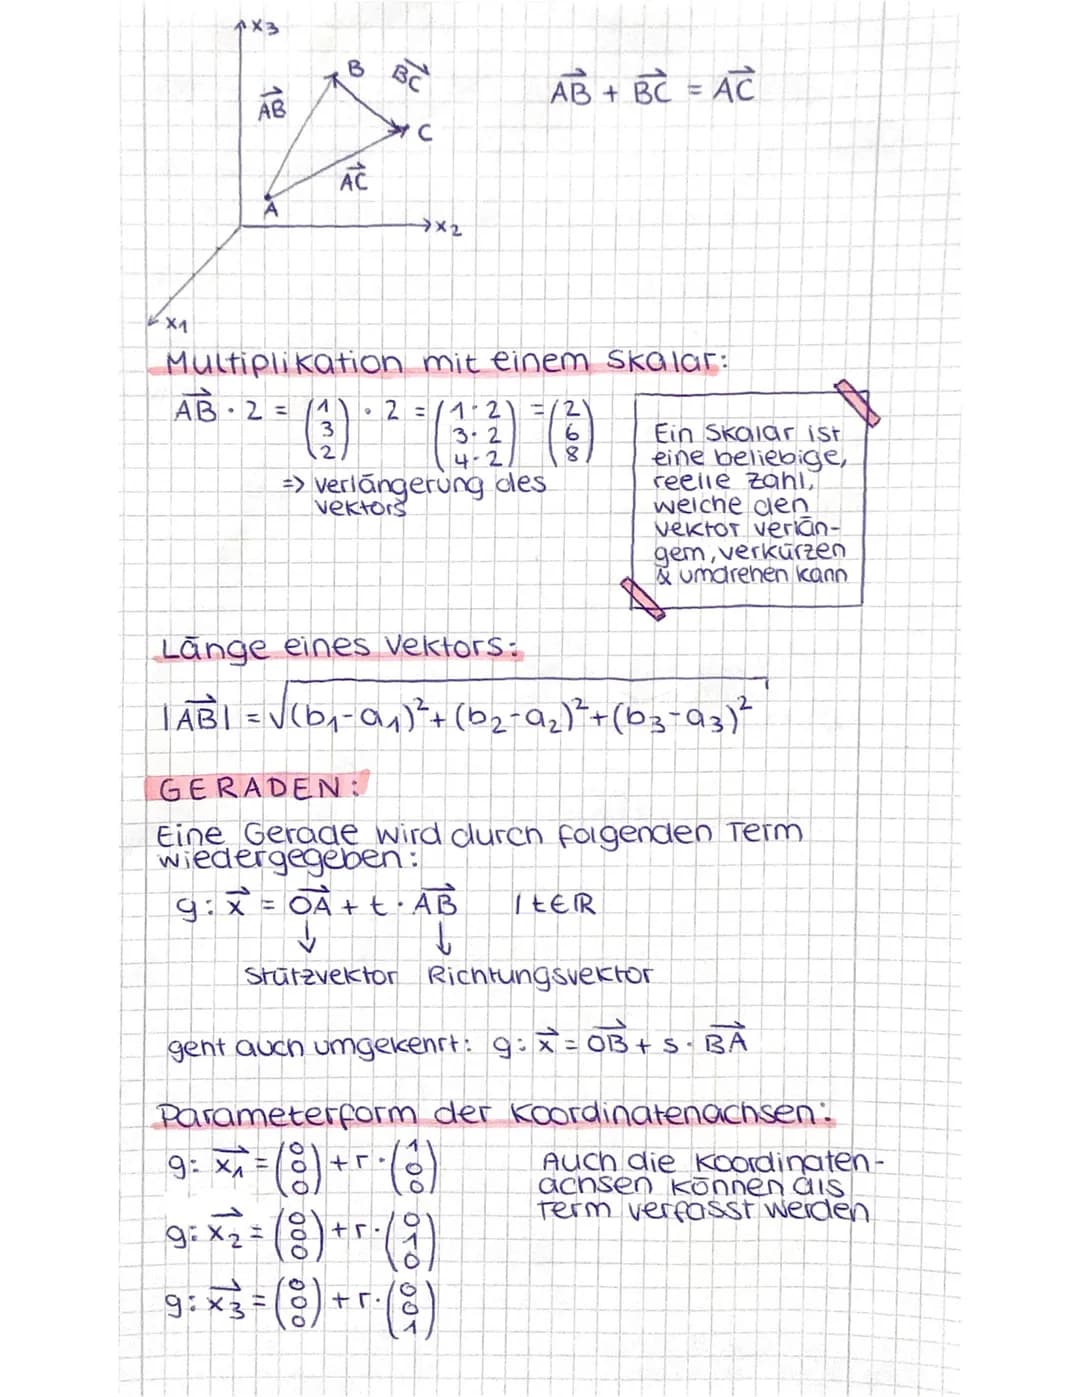 x3
B
BC
AB
C
AC
A
x2
x1
AB + BC = AC
Multiplikation mit einem Skalar:
AB · 2 = (1 3 2) · 2 = (1·2 3·2 4·2) = (2 6 8)
=> verlängerung des
vektors
Ein Skalar ist
eine beliebige,
reelle Zahl,
welche den
Vektor verlän-
gern, verkürzen
& umdrehen kann
Länge eines Vektors:
|AB| = √(b1-a1)²+(b2-a2)²+(b3-a3)²
GERADEN:
Eine Gerade wird durch folgenden Term
wiedergegeben:
g: x = OA + t · AB | t∈ℝ
↓ ↓
Stützvektor Richtungsvektor
geht auch umgekehrt: g: x = OB + s · BA
Parameterform der Koordinatenachsen:
g: x1 = (0 0 0) + r · (1 0 0)
g: x2 = (0 0 0) + r · (0 1 0)
g: x3 = (0 0 0) + r · (0 0 1)
Auch die Koordinaten-
achsen können als
Term verfasst werden